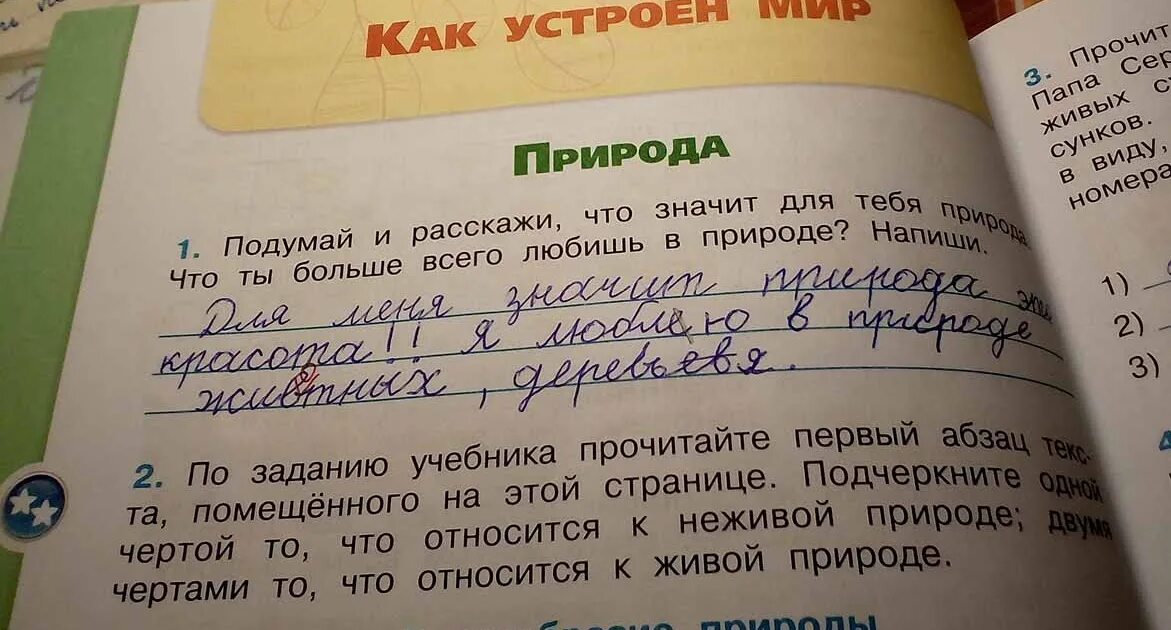 КАК УСТРОЕН МИР
ПРИРОДА
1. Подумай и расскажи, что значит для тебя природа
Что ты больше всего любишь в природе? Напиши.
Для меня значит природа эти
красота!! Я люблю в природе
животных, деревьевя.
2. По заданию учебника прочитайте первый абзац текс-
та, помещённого на этой странице. Подчеркните одной
чертой то, что относится к неживой природе; двумя
чертами то, что относится к живой природе.
природы
3. Прочит
Папа Сер
живых с
сунков.
в виду,
номера
1)
2)
3)